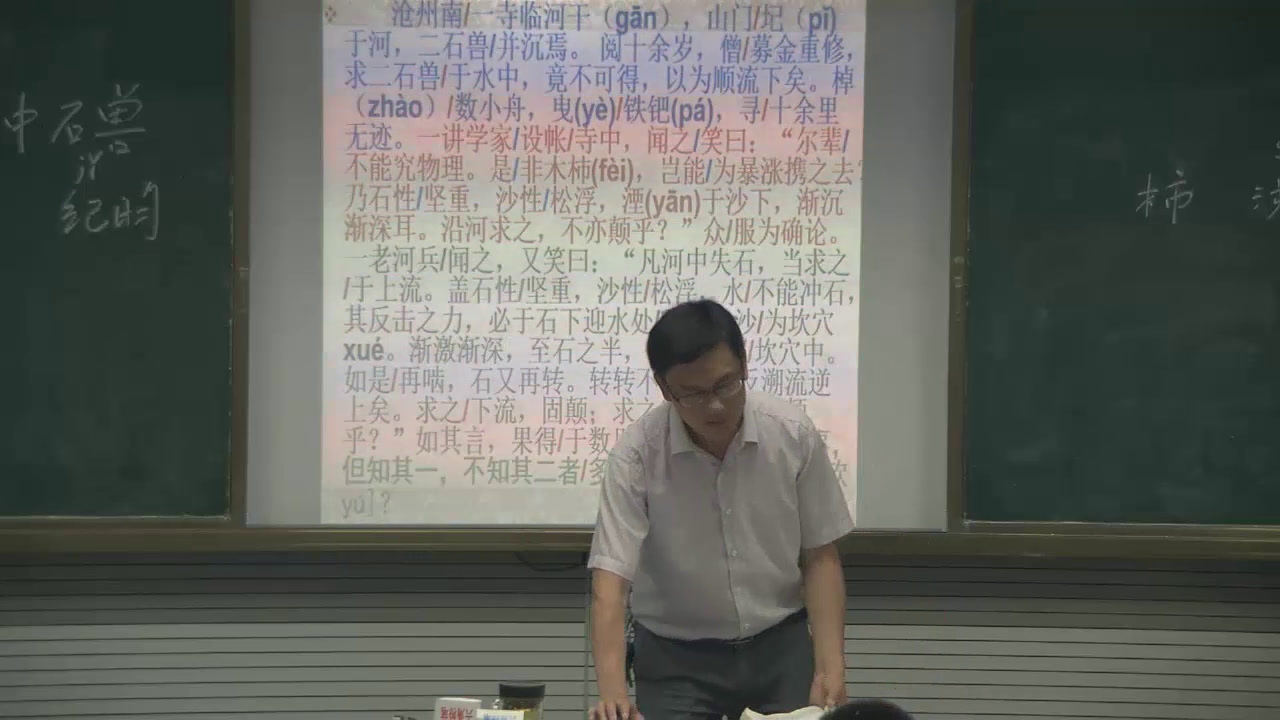 中石兽
纪昀
沧州南/一寺临河干（gān），山门/圮（pǐ）
于河，二石兽/并沉焉。阅十余岁，僧/募金重修，
求二石兽/于水中，竟不可得，以为顺流下矣。棹
（zhào）/数小舟，曳(yè)/铁钯(pá)，寻/十余里
无迹。一讲学家/设帐/寺中，闻之/笑曰：“尔辈/
不能究物理。是/非木杮(fèi)，岂能/为暴涨携之去？
乃石性/坚重，沙性/松浮，湮(yān)于沙下，渐沉
渐深耳。沿河求之，不亦颠乎？”众/服为确论。
一老河兵/闻之，又笑曰：“凡河中失石，当求之
/于上流。盖石性/坚重，沙性/松浮，水/不能冲石，
其反击之力，必于石下迎水处/沙/为坎穴
xué。渐激渐深，至石之半，/坎穴中。
如是/再啮，石又再转。转转不溯流逆
上矣。求之/下流，固颠；求之
乎？”如其言，果得/于数
但知其一，不知其二者/多
yú]？
柿
六角粉笔